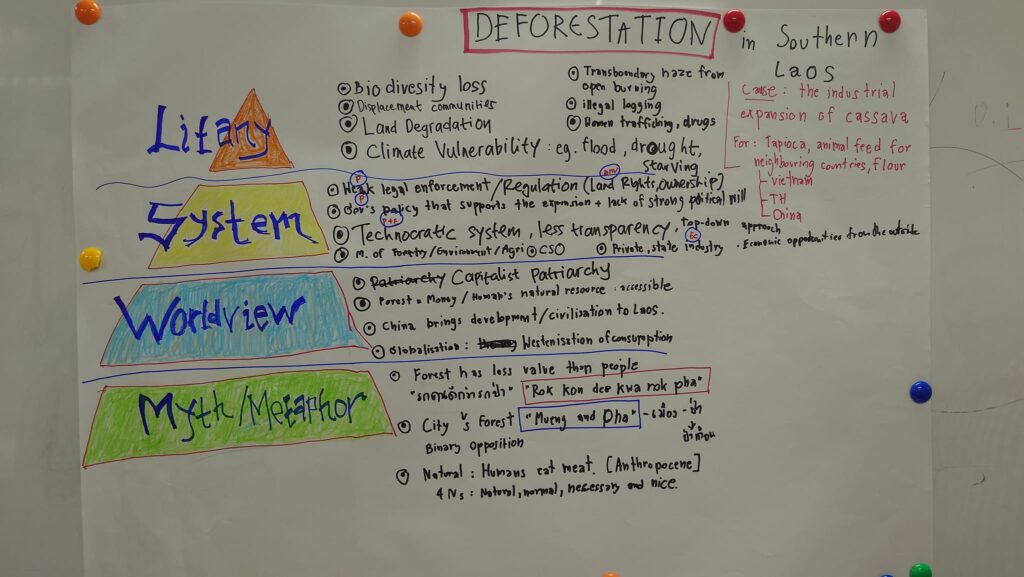 DEFORESTATION in Southern
Laos
Litany
Biodivesity loss
Displacement communities
Land Degradation
Climate Vulnerability : eg. flood, drought,
starving
Transboundary haze from
open burning
illegal logging
Women trafficking, drugs
Cause : the industrial
expansion of cassava
For : Tapioca, animal feed for
neighbouring countries, flour
Vietnam
TH
China
System
P
Weak legal enforcement/Regulation (Land Rights, Ownership)
P
Gov's policy that supports the expansion + lack of strong political will
Technocratic system, less transparency, top-down approach
M. of Forestry/Enviroment/Agri CSO
Ec
Private, state industry
Economic opportunities from the outside
Worldview
Patriarchy Capitalist Patriarchy
Forest = Money / Human's natural resource : accessible
China brings development/civilisation to Laos.
Globalisation : Westenisation of consumption
Myth/Metaphor
Forest has less value than people
"Rok kon dee kwa rok pha"
City vs Forest "Mueng and Pha" - เมือง - ป่า
Binary opposition
Natural : Humans eat meat. [Anthropocene]
4 Ns : Natural, normal, necessary and nice.